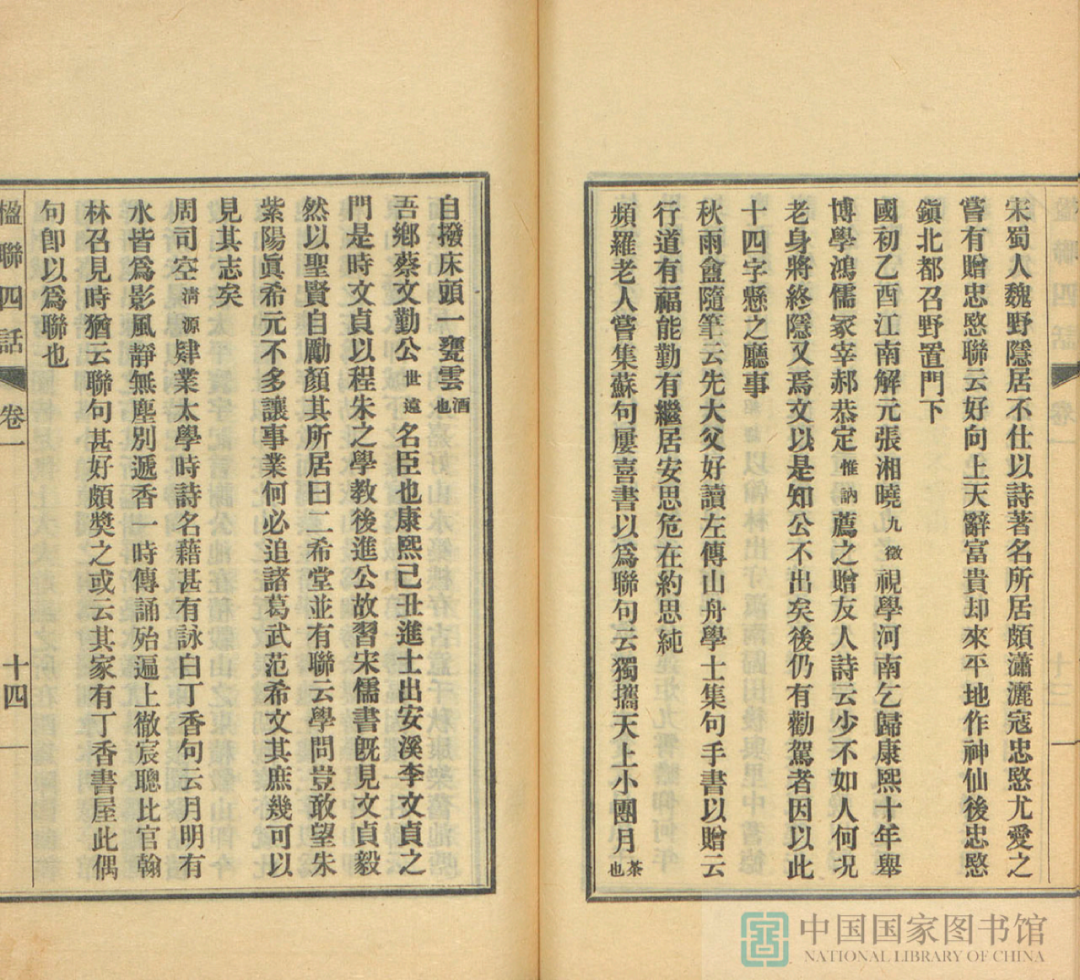 宋蜀人魏野隱居不仕以詩著名所居頗瀟灑寇忠愍尤愛之
嘗有贈忠愍聯云好向上天辭富貴却來平地作神仙後忠愍
鎭北都召野置門下
國初乙酉江南解元張湘曉九徵視學河南乞歸康熙十年舉
博學鴻儒冢宰郝恭定惟訥薦之贈友人詩云少不如人何况
老身將終隱又焉文以是知公不出矣後仍有勸駕者因以此
十四字懸之廳事
秋雨盦隨筆云先大父好讀左傳山舟學士集句手書以贈云
行道有福能勤有繼居安思危在約思純
頻羅老人嘗集蘇句屢喜書以爲聯句云獨攜天上小團月茶也
自撥床頭一甕雲酒也
吾鄉蔡文勤公世遠名臣也康熙己丑進士出安溪李文貞之
門是時文貞以程朱之學教後進公故習宋儒書旣見文貞毅
然以聖賢自勵顏其所居曰二希堂並有聯云學問豈敢望朱
紫陽眞希元不多讓事業何必追諸葛武范希文其庶幾可以
見其志矣
周司空清源肄業太學時詩名藉甚有詠白丁香句云月明有
水皆爲影風靜無塵別遞香一時傳誦殆遍上徹宸聰比官翰
林召見時猶云聯句甚好頗獎之或云其家有丁香書屋此偶
句卽以爲聯也
楹聯四話 卷一 十四
中国国家图书馆
NATIONAL LIBRARY OF CHINA